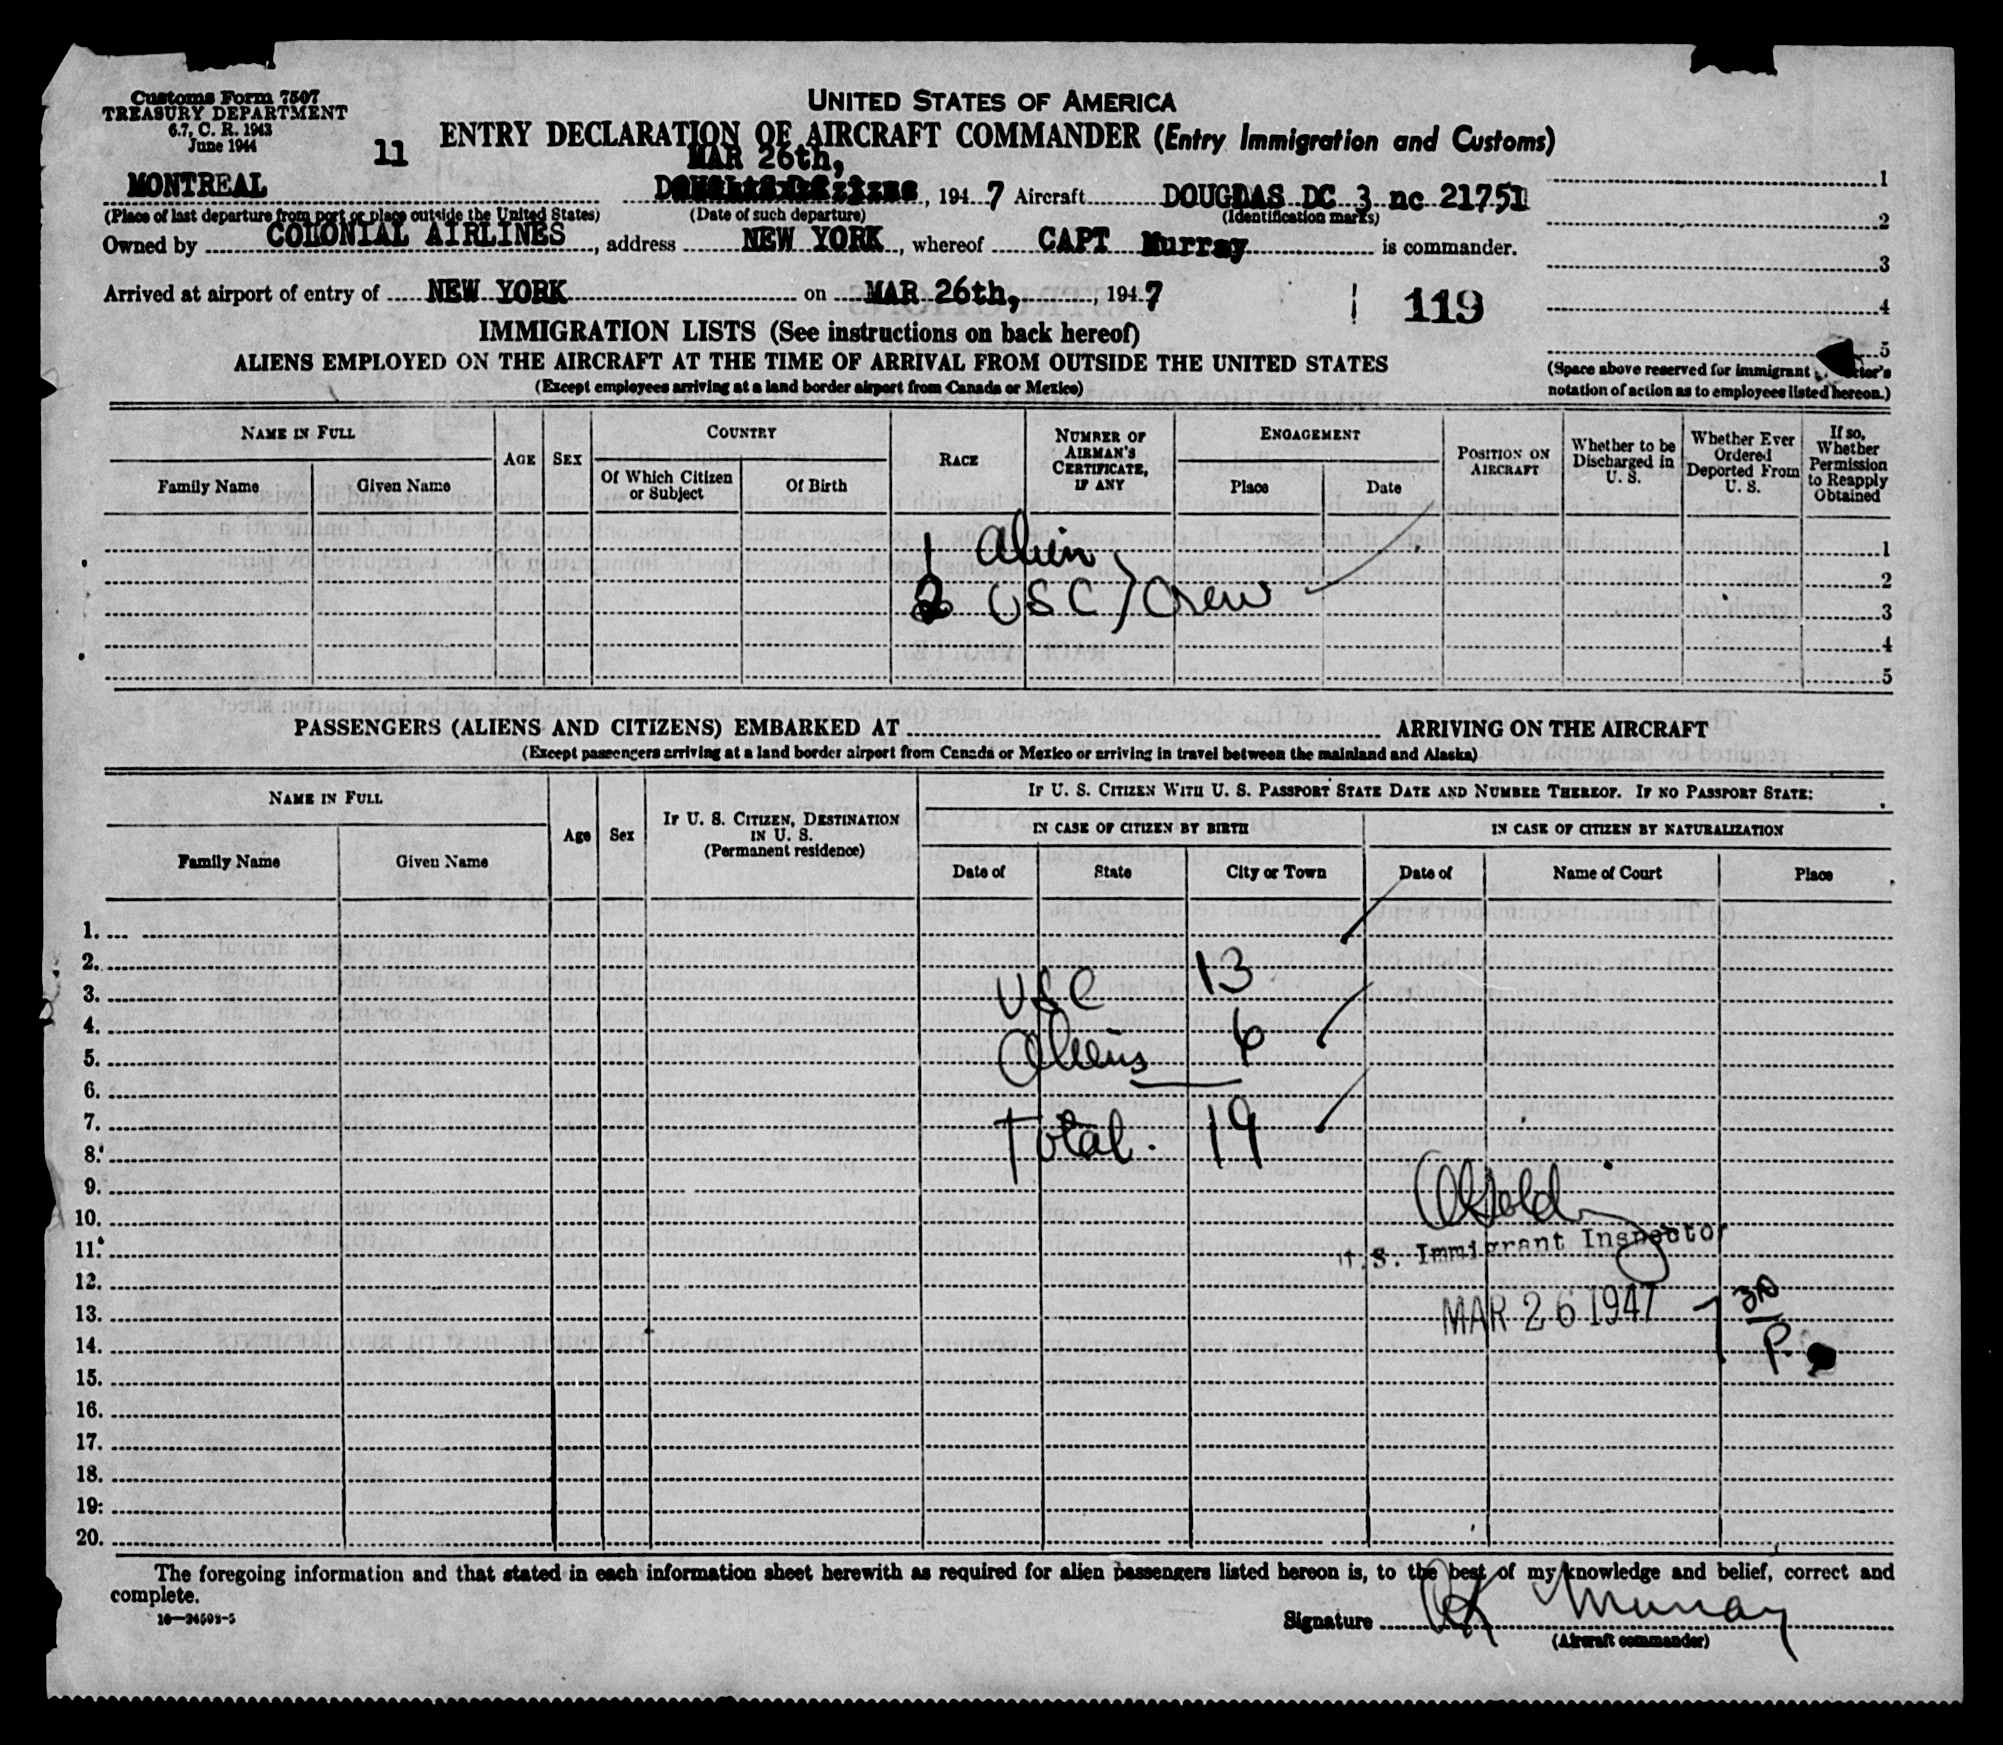 Customs Form 7507
TREASURY DEPARTMENT
6.7, C. R. 1943
June 1944
11
UNITED STATES OF AMERICA
ENTRY DECLARATION OF AIRCRAFT COMMANDER (Entry Immigration and Customs)
MAR 26th,
MONTREAL , 194 7 Aircraft DOUGDAS DC 3 nc 21751
(Place of last departure from port or place outside the United States) (Date of such departure) (Identification marks)
Owned by COLONIAL AIRLINES, address NEW YORK, whereof CAPT Murray is commander.
Arrived at airport of entry of NEW YORK on MAR 26th, , 194 7
119
1
2
3
4
5
(Space above reserved for immigrant
notation of action as to employees listed hereon.)
IMMIGRATION LISTS (See instructions on back hereof)
ALIENS EMPLOYED ON THE AIRCRAFT AT THE TIME OF ARRIVAL FROM OUTSIDE THE UNITED STATES
(Except employees arriving at a land border airport from Canada or Mexico)
NAME IN FULL
Family Name
Given Name
AGE
SEX
COUNTRY
Of Which Citizen or Subject
Of Birth
RACE
NUMBER OF AIRMAN'S CERTIFICATE, IF ANY
ENGAGEMENT
Place
Date
POSITION ON AIRCRAFT
Whether to be Discharged in U. S.
Whether Ever Ordered Deported From U. S.
If so, Whether Permission to Reapply Obtained
1 Alien
2 USC } Crew
1
2
3
4
5
PASSENGERS (ALIENS AND CITIZENS) EMBARKED AT ARRIVING ON THE AIRCRAFT
(Except passengers arriving at a land border airport from Canada or Mexico or arriving in travel between the mainland and Alaska)
NAME IN FULL
Family Name
Given Name
Age
Sex
IF U. S. CITIZEN, DESTINATION IN U. S.
(Permanent residence)
IF U. S. CITIZEN WITH U. S. PASSPORT STATE DATE AND NUMBER THEREOF. IF NO PASSPORT STATE:
IN CASE OF CITIZEN BY BIRTH
Date of
State
City or Town
IN CASE OF CITIZEN BY NATURALIZATION
Date of
Name of Court
Place
1.
2.
3.
4.
5.
6.
7.
8.
9.
10.
11.
12.
13.
14.
15.
16.
17.
18.
19.
20.
USC 13
Aliens 6
Total. 19
U.S. Immigrant Inspector
MAR 26 1947 7 30
P.
The foregoing information and that stated in each information sheet herewith as required for alien passengers listed hereon is, to the best of my knowledge and belief, correct and
complete.
16—24593-5
Signature Murray
(Aircraft commander)